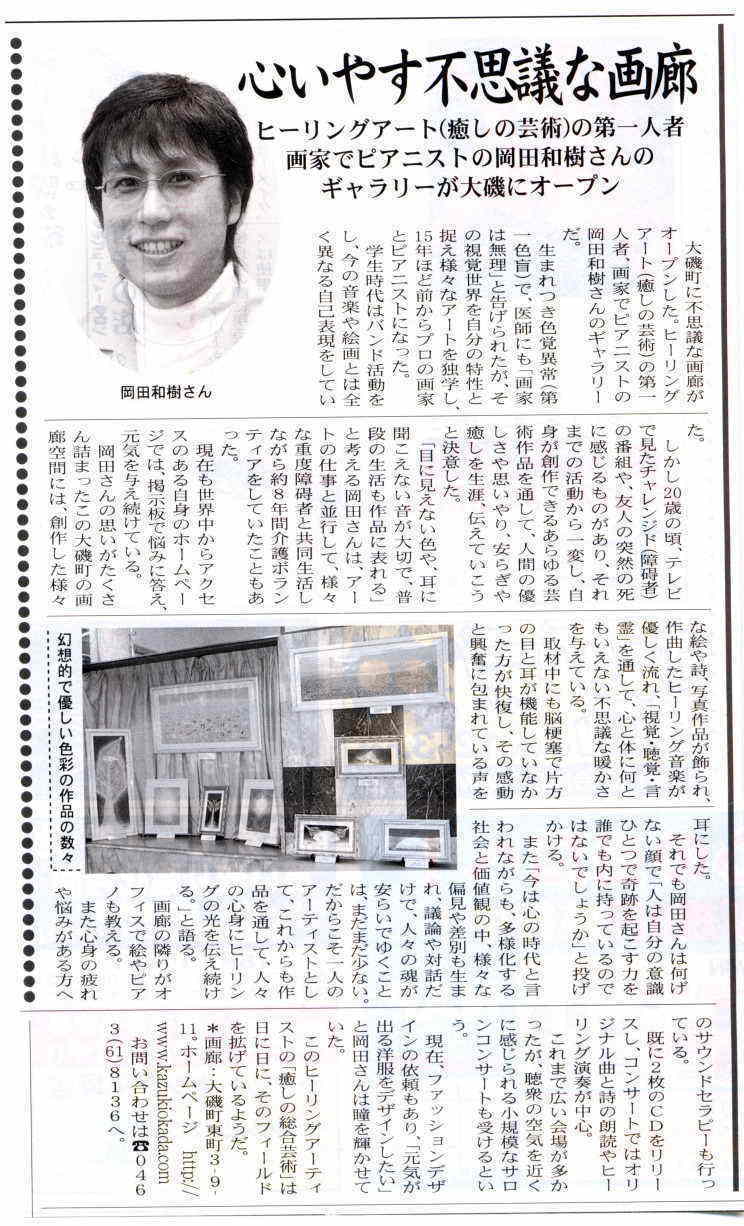 心いやす不思議な画廊
ヒーリングアート(癒しの芸術)の第一人者
画家でピアニストの岡田和樹さんの
ギャラリーが大磯にオープン
岡田和樹さん
　大磯町に不思議な画廊が
オープンした。ヒーリング
アート(癒しの芸術)の第一
人者、画家でピアニストの
岡田和樹さんのギャラリー
だ。
　生まれつき色覚異常(第
一色盲)で、医師にも「画家
は無理」と告げられたが、そ
の視覚世界を自分の特性と
捉え様々なアートを独学し、
15年ほど前からプロの画家
とピアニストになった。
　学生時代はバンド活動を
し、今の音楽や絵画とは全
く異なる自己表現をしてい
た。
　しかし20歳の頃、テレビ
で見たチャレンジド(障碍者)
の番組や、友人の突然の死
に感じるものがあり、それ
までの活動から一変し、自
身が創作できるあらゆる芸
術作品を通して、人間の優
しさや思いやり、安らぎや
癒しを生涯、伝えていこう
と決意した。
　「目に見えない色や、耳に
聞こえない音が大切で、普
段の生活も作品に表れる」
と考える岡田さんは、アー
トの仕事と並行して、様々
な重度障碍者と共同生活し
ながら約8年間介護ボラン
ティアをしていたこともあ
った。
　現在も世界中からアクセ
スのある自身のホームペー
ジでは、掲示板で悩みに答え、
元気を与え続けている。
　岡田さんの思いがたくさ
ん詰まったこの大磯町の画
廊空間には、創作した様々
な絵や詩、写真作品が飾られ、
作曲したヒーリング音楽が
優しく流れ、「視覚・聴覚・言
霊」を通して、心と体に何と
もいえない不思議な暖かさ
を与えている。
　取材中にも脳梗塞で片方
の目と耳が機能していなか
った方が快復し、その感動
と興奮に包まれている声を
耳にした。
　それでも岡田さんは何げ
ない顔で「人は自分の意識
ひとつで奇跡を起こす力を
誰でも内に持っているので
はないでしょうか」と投げ
かける。
　また「今は心の時代と言
われながらも、多様化する
社会と価値観の中、様々な
偏見や差別も生ま
れ、議論や対話だ
けで、人々の魂が
安らいでゆくこと
は、まだまだ少ない。
だからこそ一人の
アーティストとし
て、これからも作
品を通して、人々
の心身にヒーリン
グの光を伝え続け
る。」と語る。
　画廊の隣りがオ
フィスで絵やピア
ノも教える。
　また心身の疲れ
や悩みがある方へ
のサウンドセラピーも行っ
ている。
　既に2枚のCDをリリー
スし、コンサートではオリ
ジナル曲と詩の朗読やヒー
リング演奏が中心。
　これまで広い会場が多か
ったが、聴衆の空気を近く
に感じられる小規模なサロ
ンコンサートも受けるとい
う。
　現在、ファッションデザ
インの依頼もあり、「元気が
出る洋服をデザインしたい」
と岡田さんは瞳を輝かせて
いた。
　このヒーリングアーティ
ストの「癒しの総合芸術」は
日に日に、そのフィールド
を拡げているようだ。
＊画廊：大磯町東町3-9-
11。ホームページ　http://
www.kazukiokada.com/
　お問い合わせは☎046
3(61)8136へ。
幻想的で優しい色彩の作品の数々